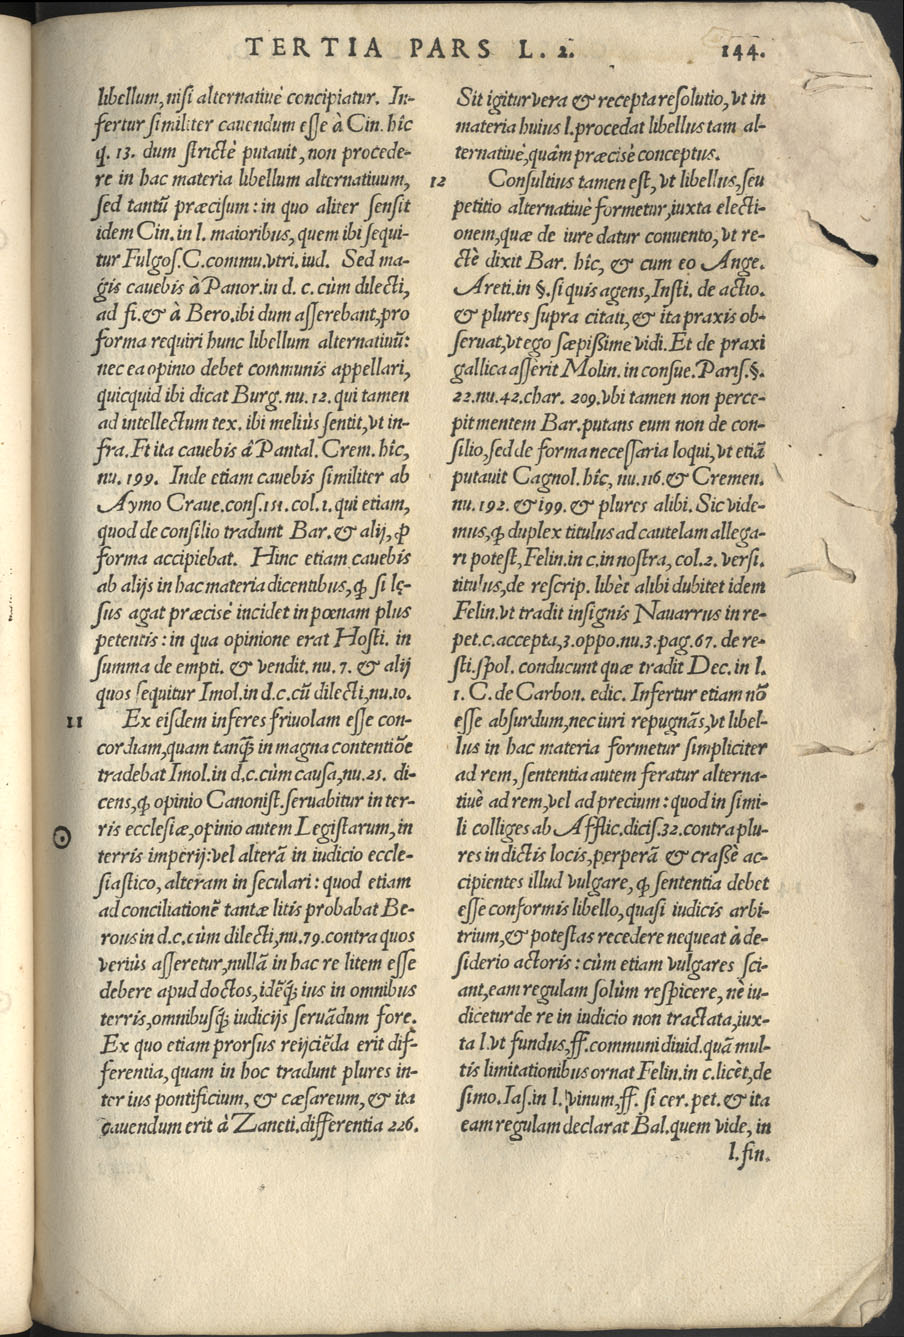 TERTIA PARS L. 2. 144.
libellum, nisi alternatiuè concipiatur. In-
fertur similiter cauendum esse à Cin. hîc
q. 13. dum strictè putauit, non procede-
re in hac materia libellum alternatiuum,
sed tantũ præcisum: in quo aliter sensit
idem Cin. in l. maioribus, quem ibi sequi-
tur Fulgos. C. commu. vtri. iud. Sed ma-
gis cauebis à Panor. in d. c. cùm dilecti,
ad fi. & à Bero. ibi dum asserebant, pro
forma requiri hunc libellum alternatiuũ:
nec ea opinio debet communis appellari,
quicquid ibi dicat Burg. nu. 12. qui tamen
ad intellectum tex. ibi meliùs sentit, vt in-
fra. Et ita cauebis â Pantal. Crem. hîc,
nu. 199. Inde etiam cauebis similiter ab
Aymo Craue. cons. 151. col. 1. qui etiam,
quod de consilio tradunt Bar. & alij, ꝓ
forma accipiebat. Hinc etiam cauebis
ab alijs in hac materia dicentibus, ꝙ si lę-
sus agat præcisè incidet in pœnam plus
petentis: in qua opinione erat Hosti. in
summa de empti. & vendit. nu. 7. & alij
quos sequitur Imol. in d. c. cũ dilecti, nu. 10.
11 Ex eisdem inferes friuolam esse con-
cordiam, quam tanq̃ in magna contentiõe
tradebat Imol. in d. c. cùm causa, nu. 25. di-
cens, ꝙ opinio Canonist. seruabitur in ter-
ris ecclesiæ, opinio autem Legistarum, in
terris imperij: vel alterã in iudicio eccle-
siastico, alteram in seculari: quod etiam
ad conciliationẽ tantæ litis probabat Be-
rous in d. c. cùm dilecti, nu. 79. contra quos
veriùs asseretur, nullã in hac re litem esse
debere apud doctos, idẽq́; ius in omnibus
terris, omnibusq́; iudicijs seruãdum fore.
Ex quo etiam prorsus reijciẽda erit dif-
ferentia, quam in hoc tradunt plures in-
ter ius pontificium, & cæsareum, & ita
cauendum erit à Zaneti. differentia 226.
Sit igitur vera & recepta resolutio, vt in
materia huius l. procedat libellus tam al-
ternatiuè, quâm præcisè conceptus.
12 Consultius tamen est, vt libellus, seu
petitio alternatiuè formetur, iuxta electi-
onem, quæ de iure datur conuento, vt re-
ctè dixit Bar. hic, & cum eo Ange.
Areti. in §. si quis agens, Insti. de actio.
& plures supra citati, & ita praxis ob-
seruat, vt ego sæpißime vidi. Et de praxi
gallica assèrit Molin. in consue. Paris. §.
22. nu. 42. char. 209. vbi tamen non perce-
pit mentem Bar. putans eum non de con-
silio, sed de forma necessaria loqui, vt etiã
putauit Cagnol. hîc, nu. 116. & Cremen.
nu. 192. & 199. & plures alibi. Sic vide-
mus, ꝙ duplex titulus ad cautelam allega-
ri potest, Felin. in c. in nostra, col. 2. versi.
titulus, de rescrip. libèt alibi dubitet idem
Felin. vt tradit insignis Nauarrus in re-
pet. c. accepta, 3. oppo. nu. 3. pag. 67. de re-
sti. spol. conducunt quæ tradit Dec. in l.
1. C. de Carbon. edic. Infertur etiam nõ
esse absurdum, nec iuri repugnãs, vt libel-
lus in hac materia formetur simpliciter
ad rem, sententia autem feratur alterna-
tiuè ad rem, vel ad precium: quod in simi-
li colliges ab Afflic. dicis. 32. contra plu-
res in dictis locis, perperã & craßè ac-
cipientes illud vulgare, ꝙ sententia debet
esse conformis libello, quasi iudicis arbi-
trium, & potestas recedere nequeat à de-
siderio actoris: cùm etiam vulgares sci-
ant, eam regulam solùm respicere, nè iu-
dicetur de re in iudicio non tractata, iux-
ta l. vt fundus, ff. communi diuid. quã mul-
tis limitationibus ornat Felin. in c. licèt, de
simo. Ias. in l. vinum, ff. si cer. pet. & ita
eam regulam declarat Bal. quem vide, in
l. fin.